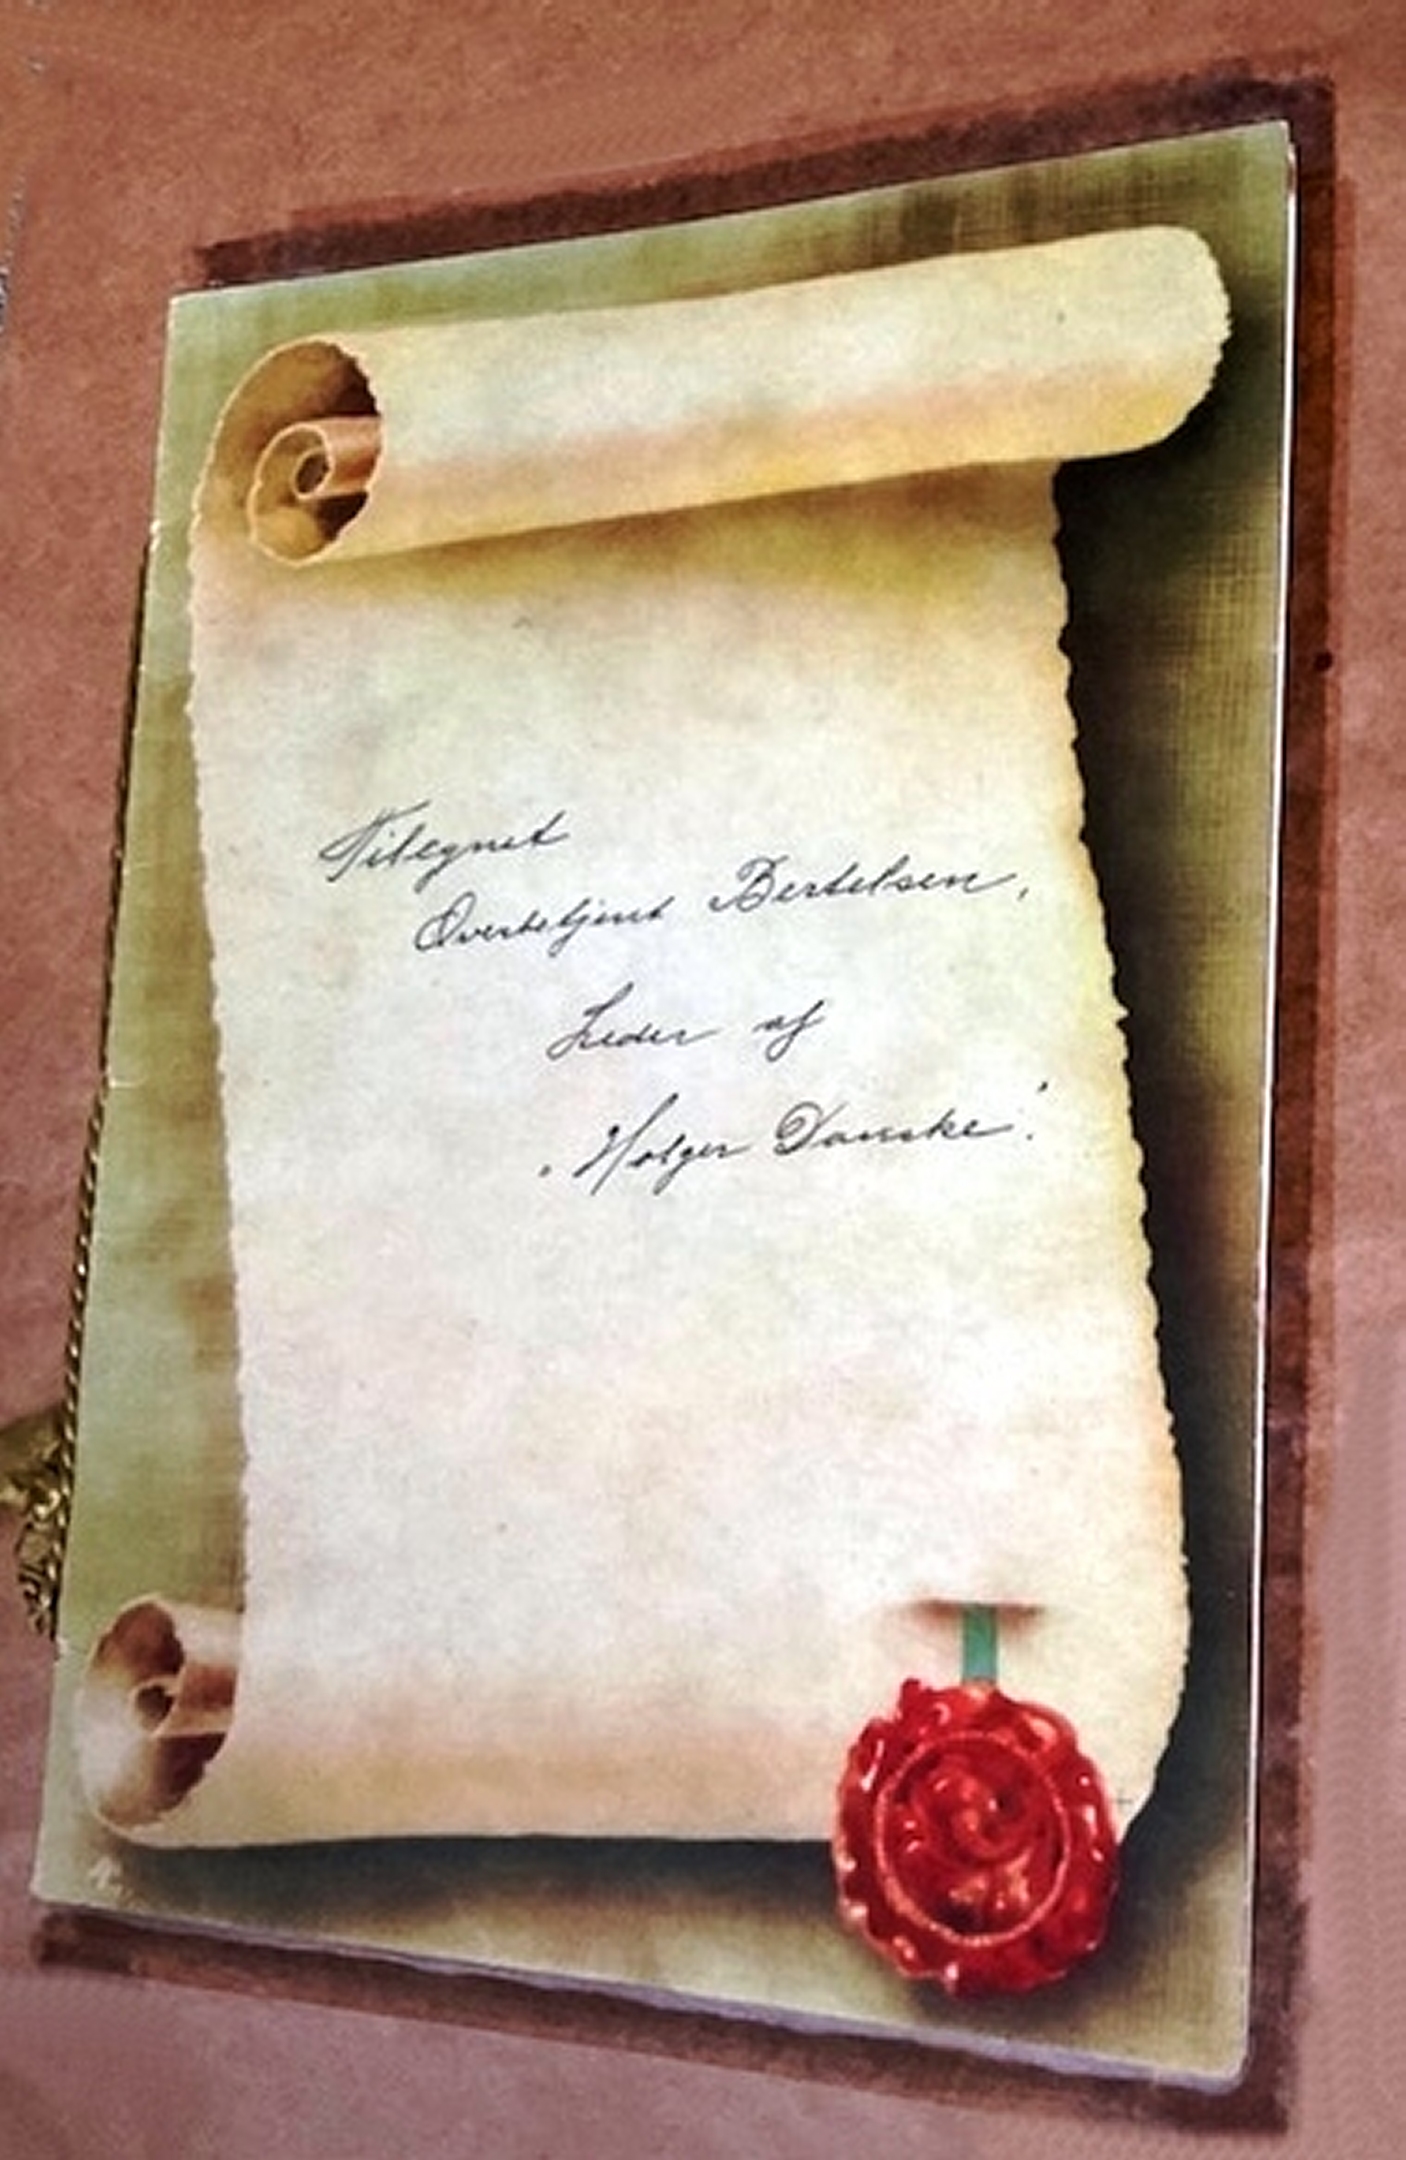 Tilegnet
Overbetjent Bertelsen,
Leder af
"Holger Danske".